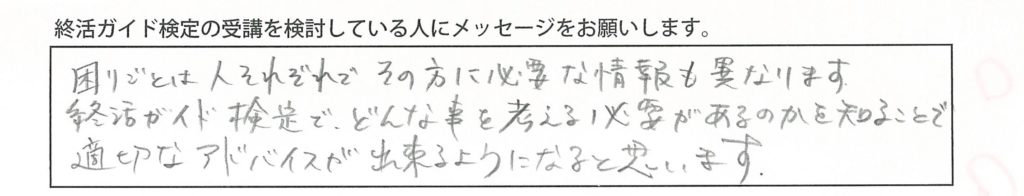 終活ガイド検定の受講を検討している人にメッセージをお願いします。
困りごとは人それぞれでその方に必要な情報も異なります.
終活ガイド検定で、どんな事を考える必要があるのかを知ることで
適切なアドバイスが出来るようになると思います.